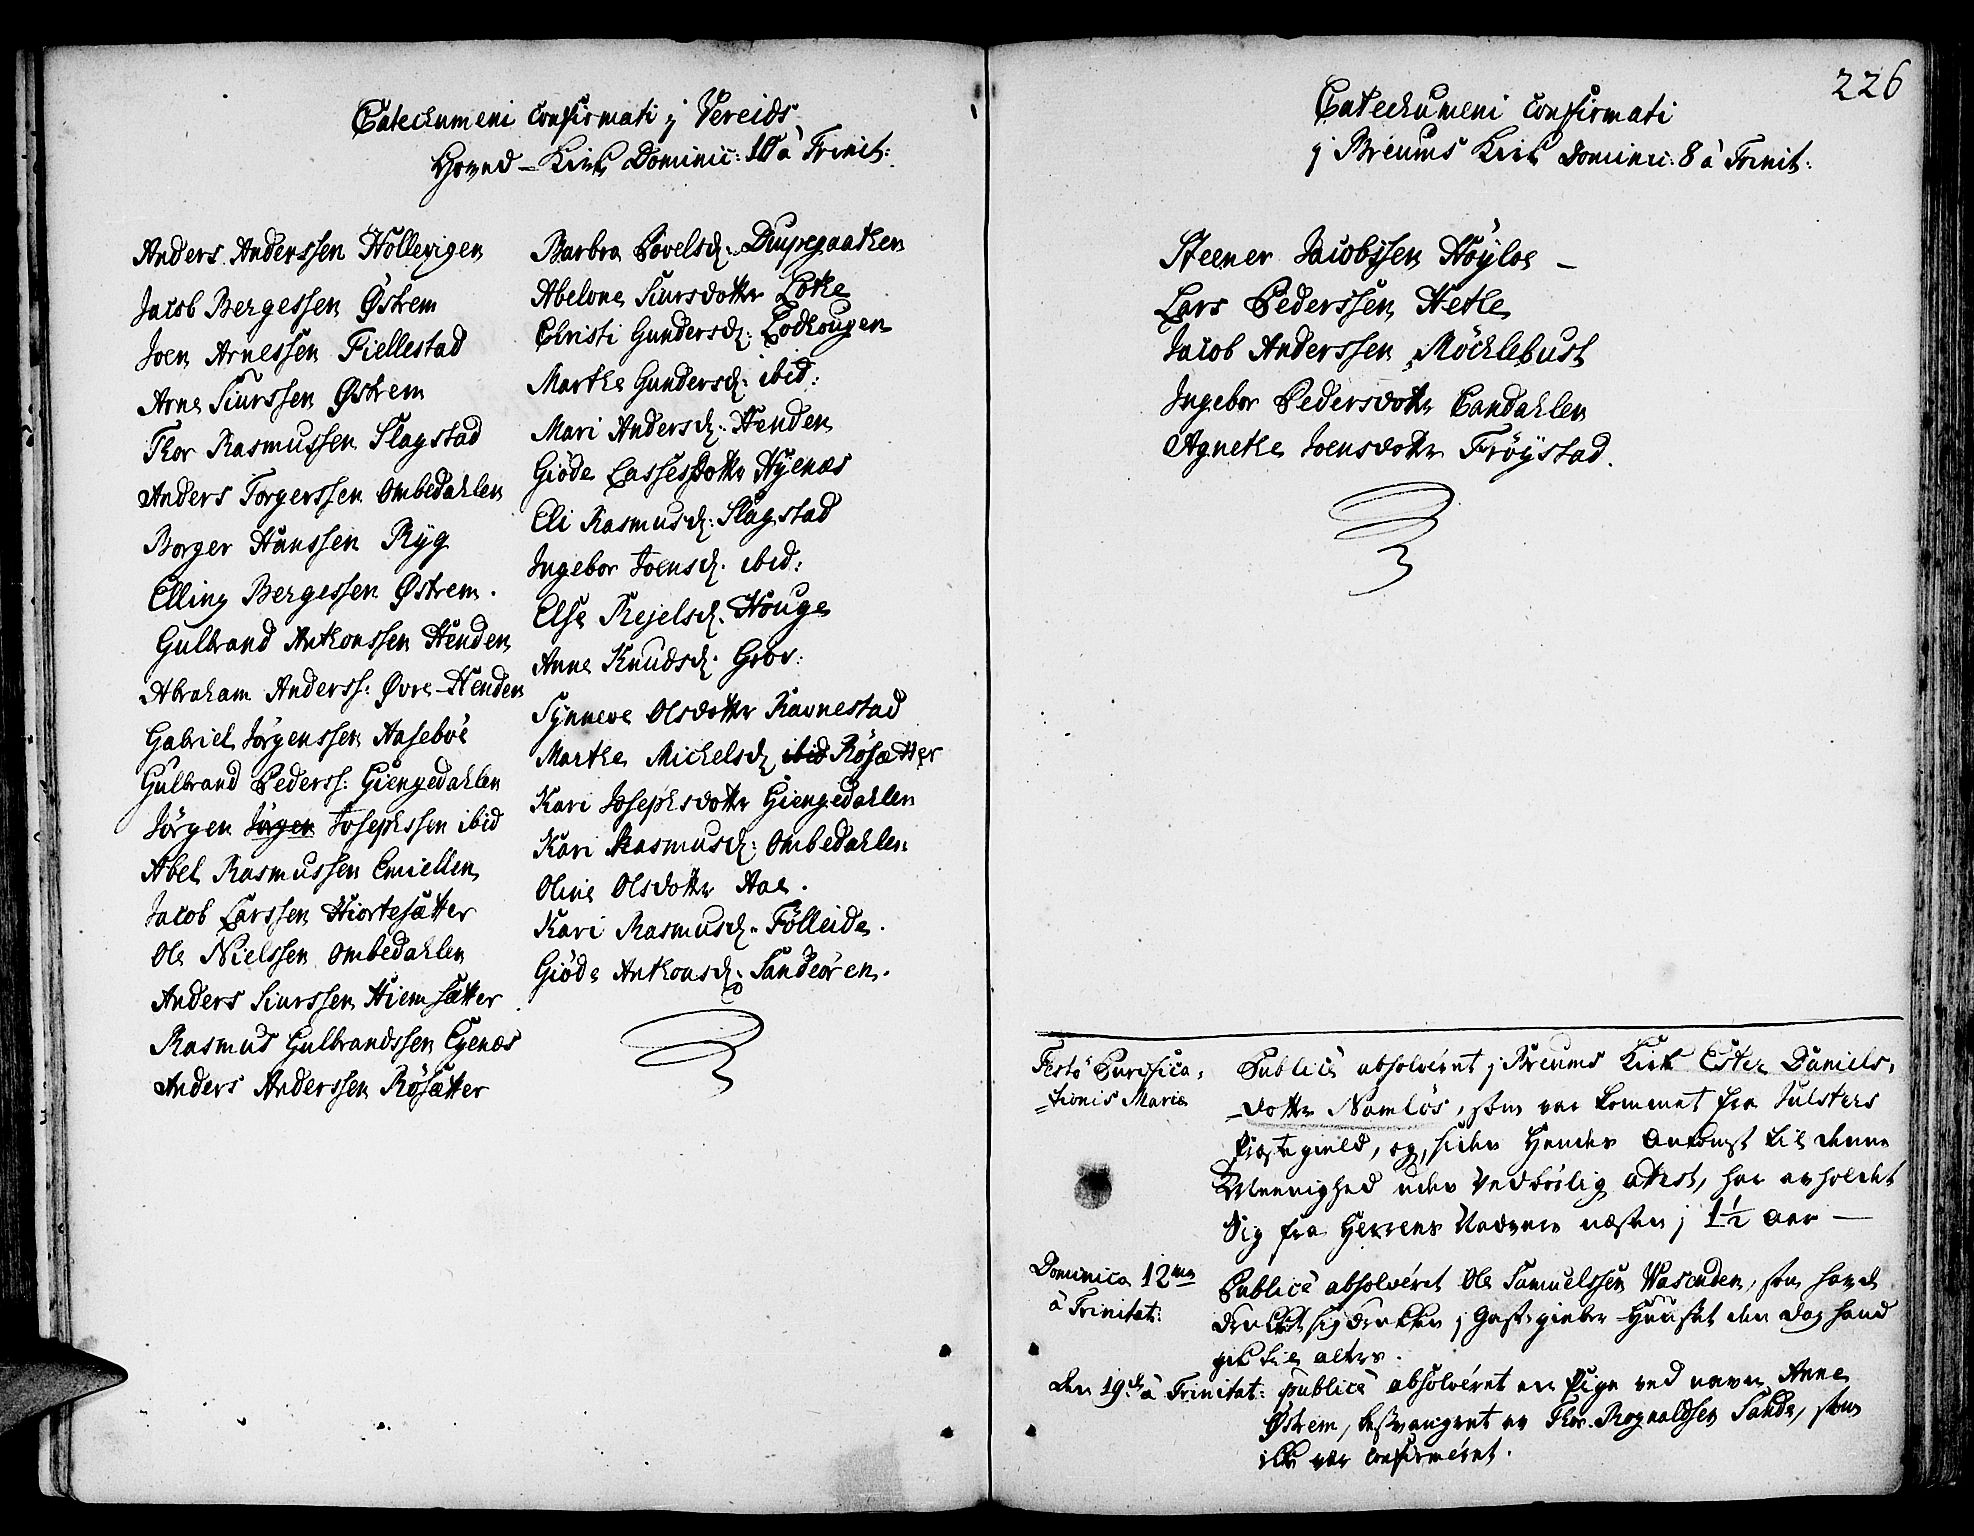 Catechumeni confirmati j Vereids
Hoved-Kirk Dominic: 10 à Trinit:
Anders Anderssen Hollevigen
Jacob Bergessen Østrem
Joen Arnessen Fiellestad
Arne Siurssen Østrem
Thor Rasmussen Slagstad
Anders Torgerssen Ombedahlen
Borger Hanssen Ryg
Elling Bergessen Østrem.
Gulbrand Anthonssen Henden
Abraham Anderss: Øvre-Henden
Gabriel Jörgenssen Aaseböe
Gulbrand Pederss: Giengedahlen
Jörgen Jörgen Josephssen ibid
Abel Rasmussen Emiellen
Jacob Larssen Hiortesætter
Ole Nielssen Ombedahlen
Anders Siurssen Hiemsætter
Rasmus Gulbrandssen Eyenæs
Anders Anderssen Rösætter
Barbra Povelsd. Diupegaathen
Abelone Siursdotter Lothe
Christi Gundersd: Lodhougen
Marthe Gundersd: ibid:
Mari Andersd: Henden
Giöde Lassesdotter Hyenæs
Eli Rasmusd: Slagstad
Ingebor Joensd. ibid:
Else Rejelsd. Houge
Anne Knudsd. Grov:
Synneve Olsdotter Ravnestad
Marthe Michelsd ibid Rösætter
Kari Josephsdotter Giengedahlen
Kari Rasmusd: Ombedahlen
Oline Olsdotter Aae.
Kari Rasmusd. Fölleide.
Giöde Anthonsd: Sandeören.
226
Catechumeni confirmati
j Breums Kirk Dominic: 8 à Trinit:
Steener Jacobssen Höyloe -
Lars Pederssen Hetle
Jacob Anderssen Möchlebust
Ingebor Pedersdotter Sandahlen
Agnethe Joensdotter Fröystad.
Festo Purifica-
-tionis Mariæ
Publicè absolvéret j Breums Kirk Ester Daniels-
-dotter Namlös, som var kommet fra Jülsters
Præstegield, og, siden hendes Ankomst til denne
Meenighed uden Vedbörlig attest, har avholdet
sig fra Herrens Nadvere næsten j 1½ Aar —
Dominica 12ma
à Trinitat:
Publicè absolvéret Ole Samuelssen Wasenden, som havde
drukket sig drukken j Gæstgieber-Huuset den dag hand
gik til alters.
Den 19de à Trinitat: publicè absolvéret en Pige ved navn Anne
Østrem, besvangret av Thor Rognaldsen Sande, som
ikke var confirméret.